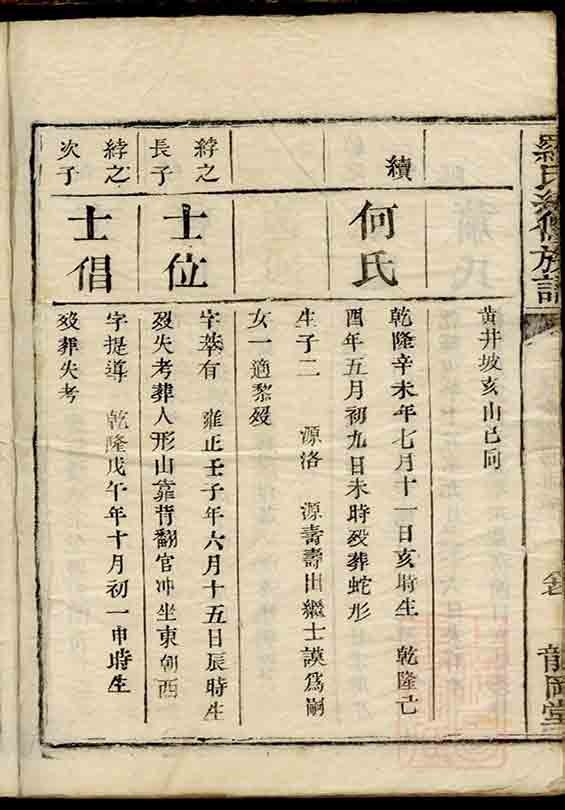 羅氏續修族譜
卷
龍岡堂
黄井坡亥山巳向
續
何氏
乾隆辛未年七月十一日亥時生 乾隆己
酉年五月初九日未時殁葬蛇形
生子二 源洛 源壽壽出繼士謨爲嗣
女一適黎殁
綍之
長子
士位
字萃有 雍正壬子年六月十五日辰時生
殁失考葬人形山靠背翻官冲坐東朝西
綍之
次子
士倡
字提導 乾隆戊午年十月初一申時生
殁葬失考